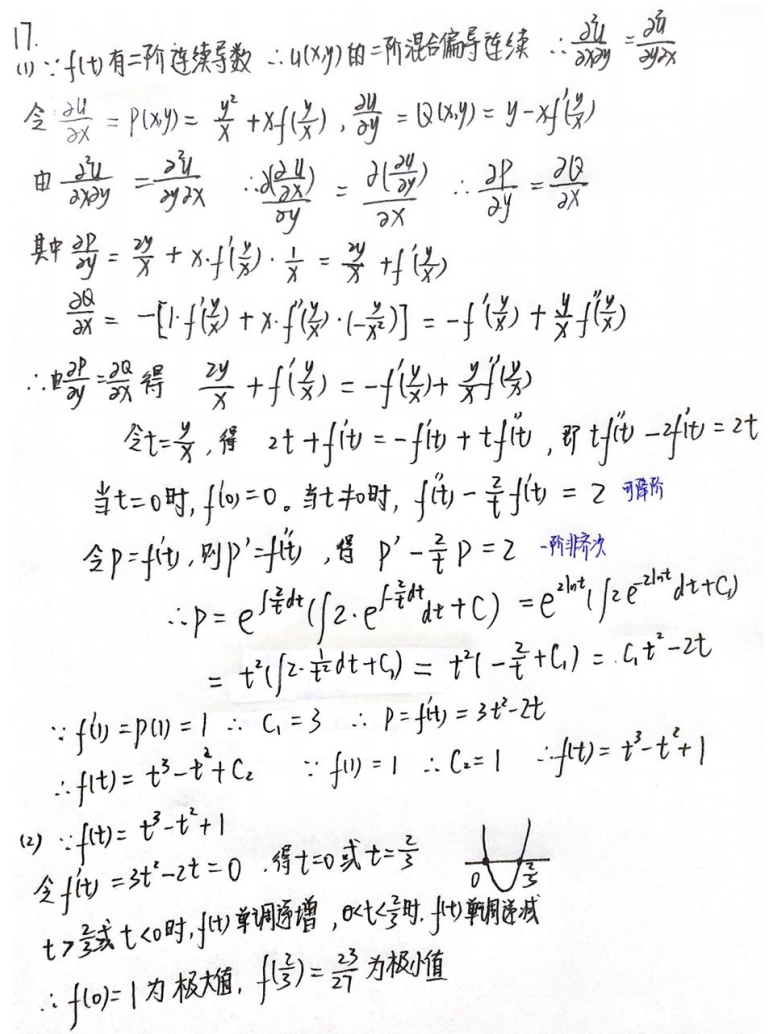 17.
(1) ∵f(t)有二阶连续导数 ∴u(x,y)的二阶混合偏导连续 ∴∂²u/∂x∂y = ∂²u/∂y∂x
令 ∂u/∂x = P(x,y) = y²/x + xf(y/x), ∂u/∂y = Q(x,y) = y - xf'(y/x)
由 ∂²u/∂x∂y = ∂²u/∂y∂x ∴∂(∂u/∂x)/∂y = ∂(∂u/∂y)/∂x ∴ ∂P/∂y = ∂Q/∂x
其中 ∂P/∂y = 2y/x + x·f'(y/x)·1/x = 2y/x + f'(y/x)
∂Q/∂x = -[1·f'(y/x) + x·f''(y/x)·(-y/x²)] = -f'(y/x) + y/x f''(y/x)
∴由∂P/∂y = ∂Q/∂x 得 2y/x + f'(y/x) = -f'(y/x) + y/x f''(y/x)
令t=y/x, 得 2t + f'(t) = -f'(t) + tf''(t), 即 tf''(t) - 2f'(t) = 2t
当t=0时, f'(0)=0。当t≠0时, f''(t) - 2/t f'(t) = 2 可降阶
令P=f'(t), 则P'=f''(t), 得 P' - 2/t P = 2 一阶非齐次
∴P = e^{∫2/t dt}(∫2·e^{∫-2/t dt}dt + C) = e^{2lnt}(∫2e^{-2lnt}dt + C₁)
= t²(∫2·1/t² dt + C₁) = t²(-2/t + C₁) = C₁t² - 2t
∵f'(1) = P(1) = 1 ∴ C₁ = 3 ∴ P = f'(t) = 3t² - 2t
∴f(t) = t³ - t² + C₂ ∵ f(1) = 1 ∴C₂ = 1 ∴f(t) = t³ - t² + 1
(2) ∵f(t) = t³ - t² + 1
令f'(t) = 3t² - 2t = 0, 得t=0或t=2/3 0 2/3
t>2/3或t<0时, f(t)单调递增, 0<t<2/3时, f(t)单调递减
∴ f(0)=1为极大值, f(2/3) = 23/27 为极小值